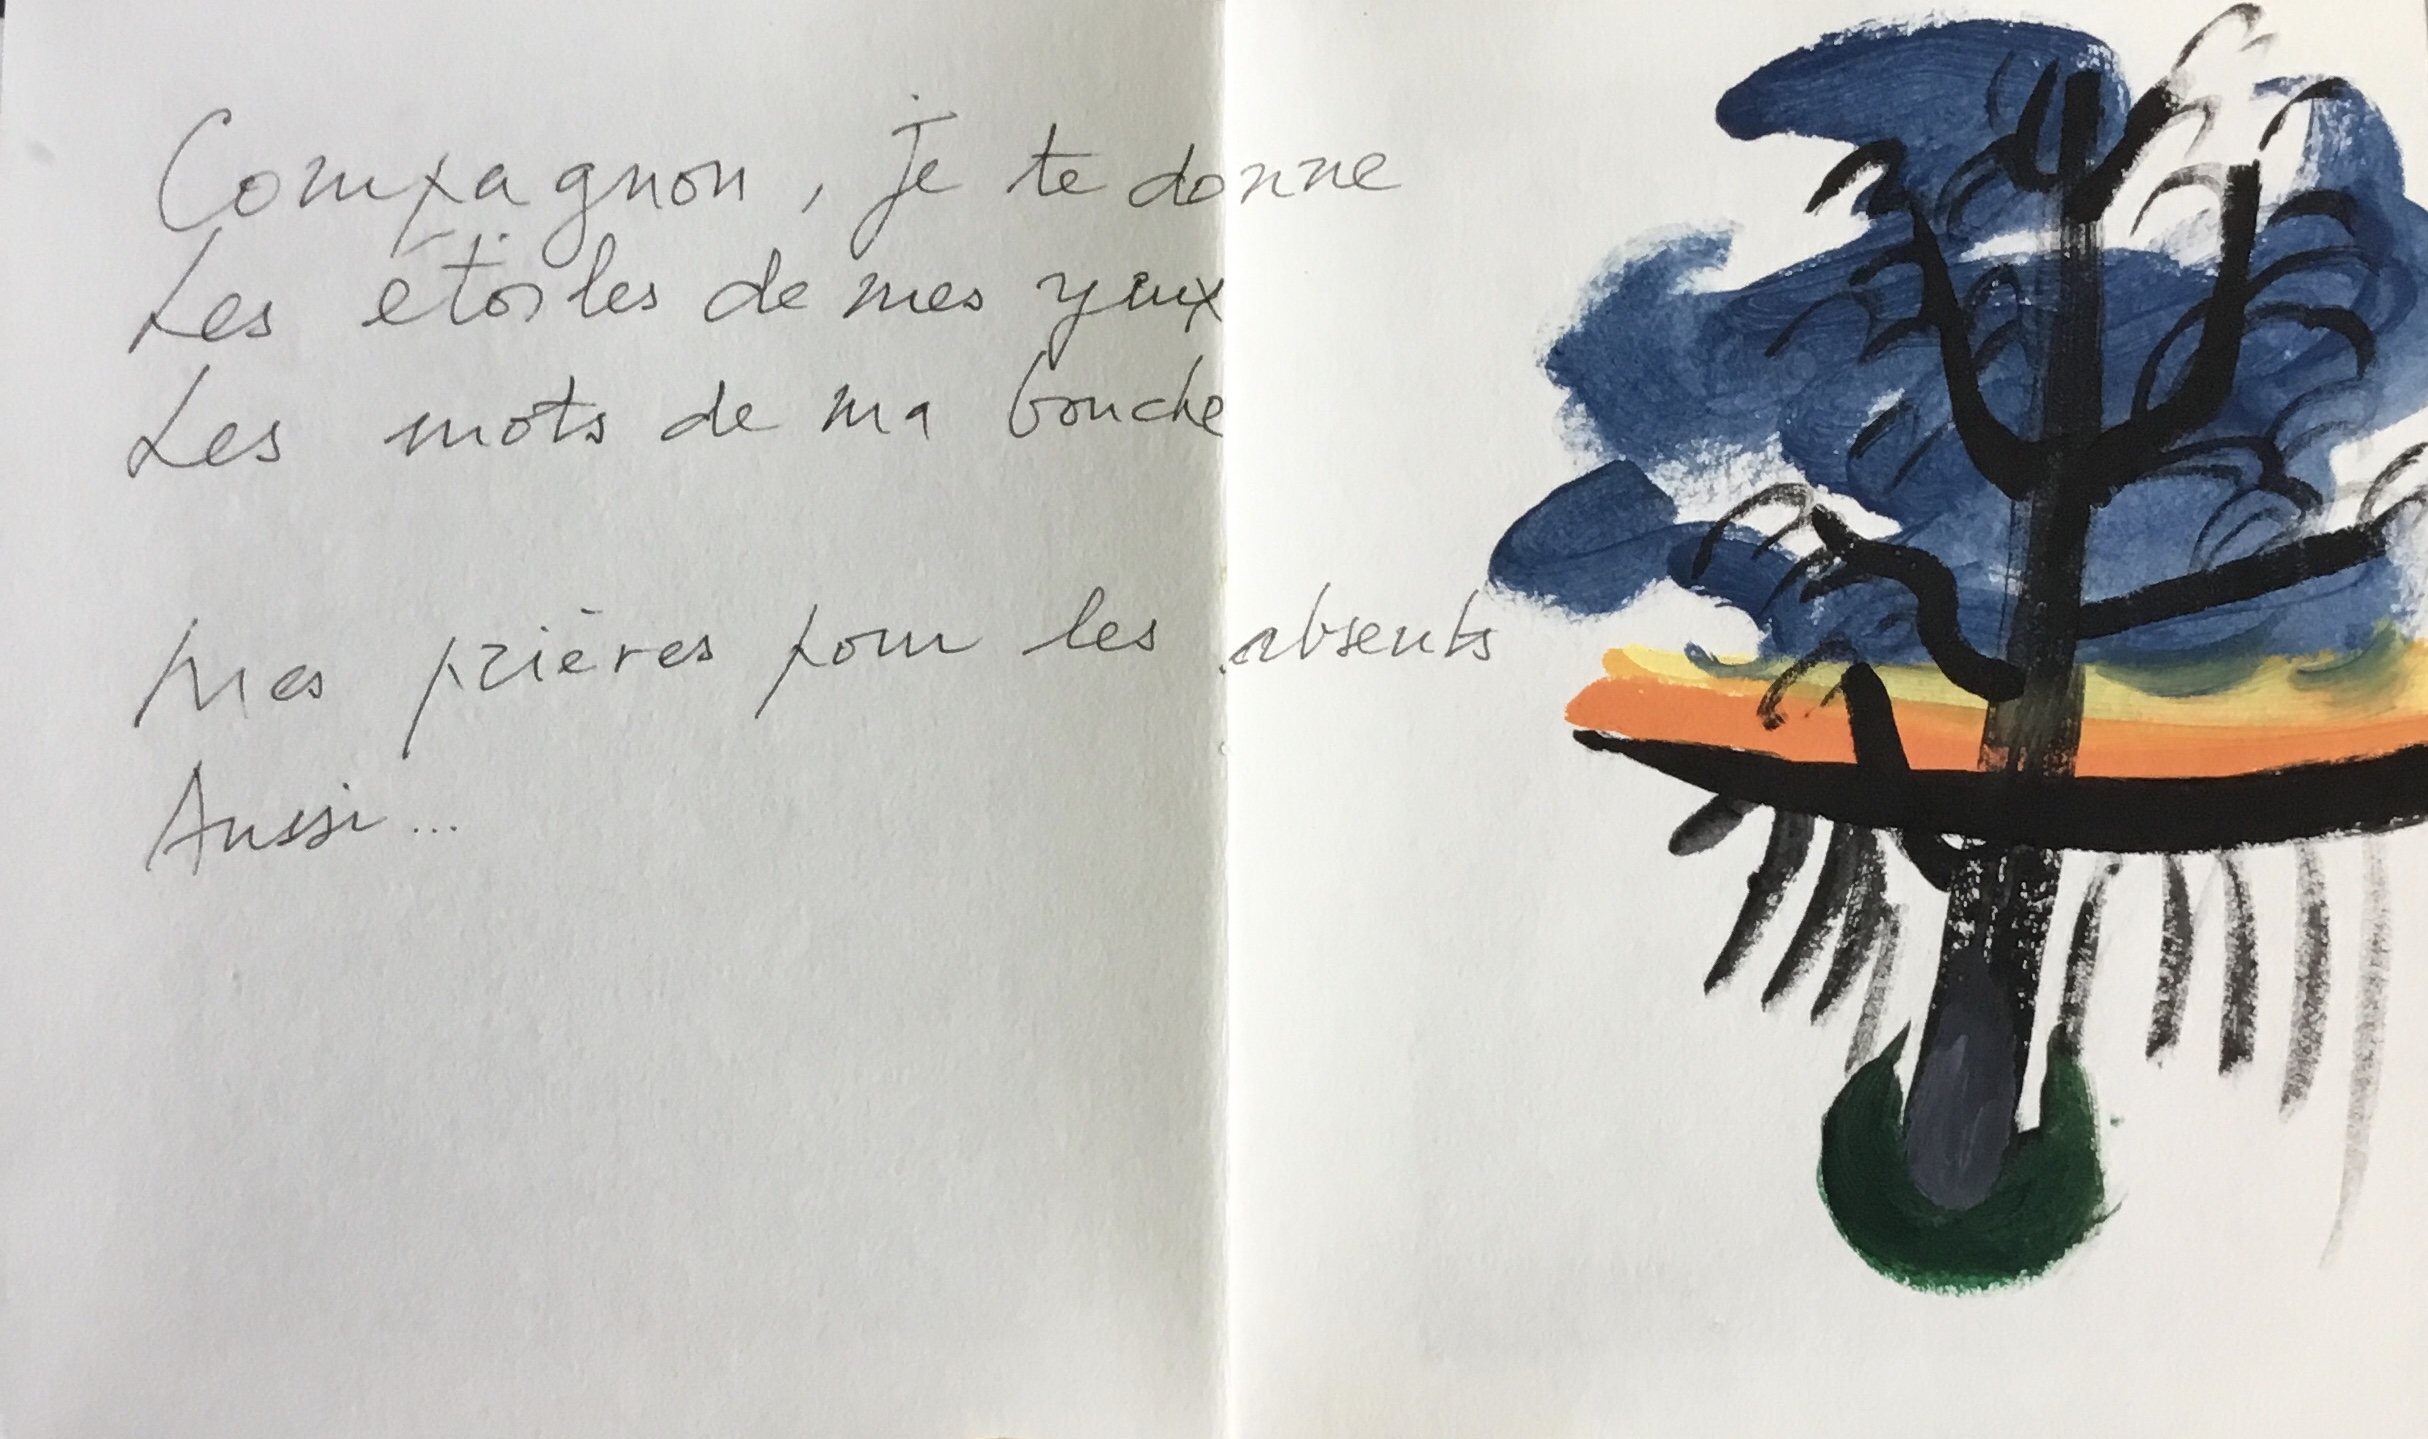 Compagnon, je te donne
Les étoiles de mes yeux
Les mots de ma bouche
Mes prières pour les absents
Aussi...